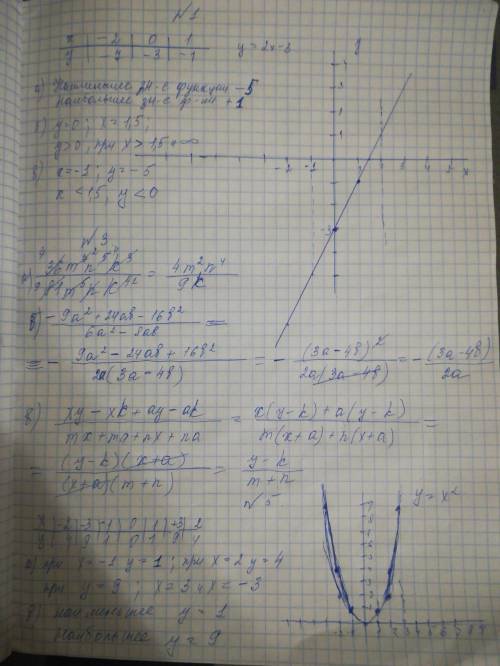 №1
x | -2 | 0 | 1
y | -7 | -3 | -1
y = 2x-3
а) Наименьшее зн-е функции -5
Наибольшее зн-е ф-ии +1
б) y=0; x=1,5;
y>0, при x > 1,5 +∞
в) x=-1; y=-5
x <1,5, y<0
№3
= 4m²n⁴ / 9k
б) -9a²+24ab-16b² / 6a²-8ab =
= - 9a²-24ab+16b² / 2a(3a-4b) = - (3a-4b)² / 2a(3a-4b) = - (3a-4b) / 2a
в) xy-xk+ay-ak / mx+ma+nx+na = x(y-k)+a(y-k) / m(x+a)+n(x+a) =
= (y-k)(x+a) / (x+a)(m+n) = y-k / m+n
№5
x | -2 | -3 | -1 | 0 | 1 | +3 | 2
y | 4 | 9 | 1 | 0 | 1 | 9 | 4
y = x²
а) при x=-1 y=1; при x=2 y=4
при y=9; x=3 и x=-3
наименьшее y=1
Наибольшее y=9